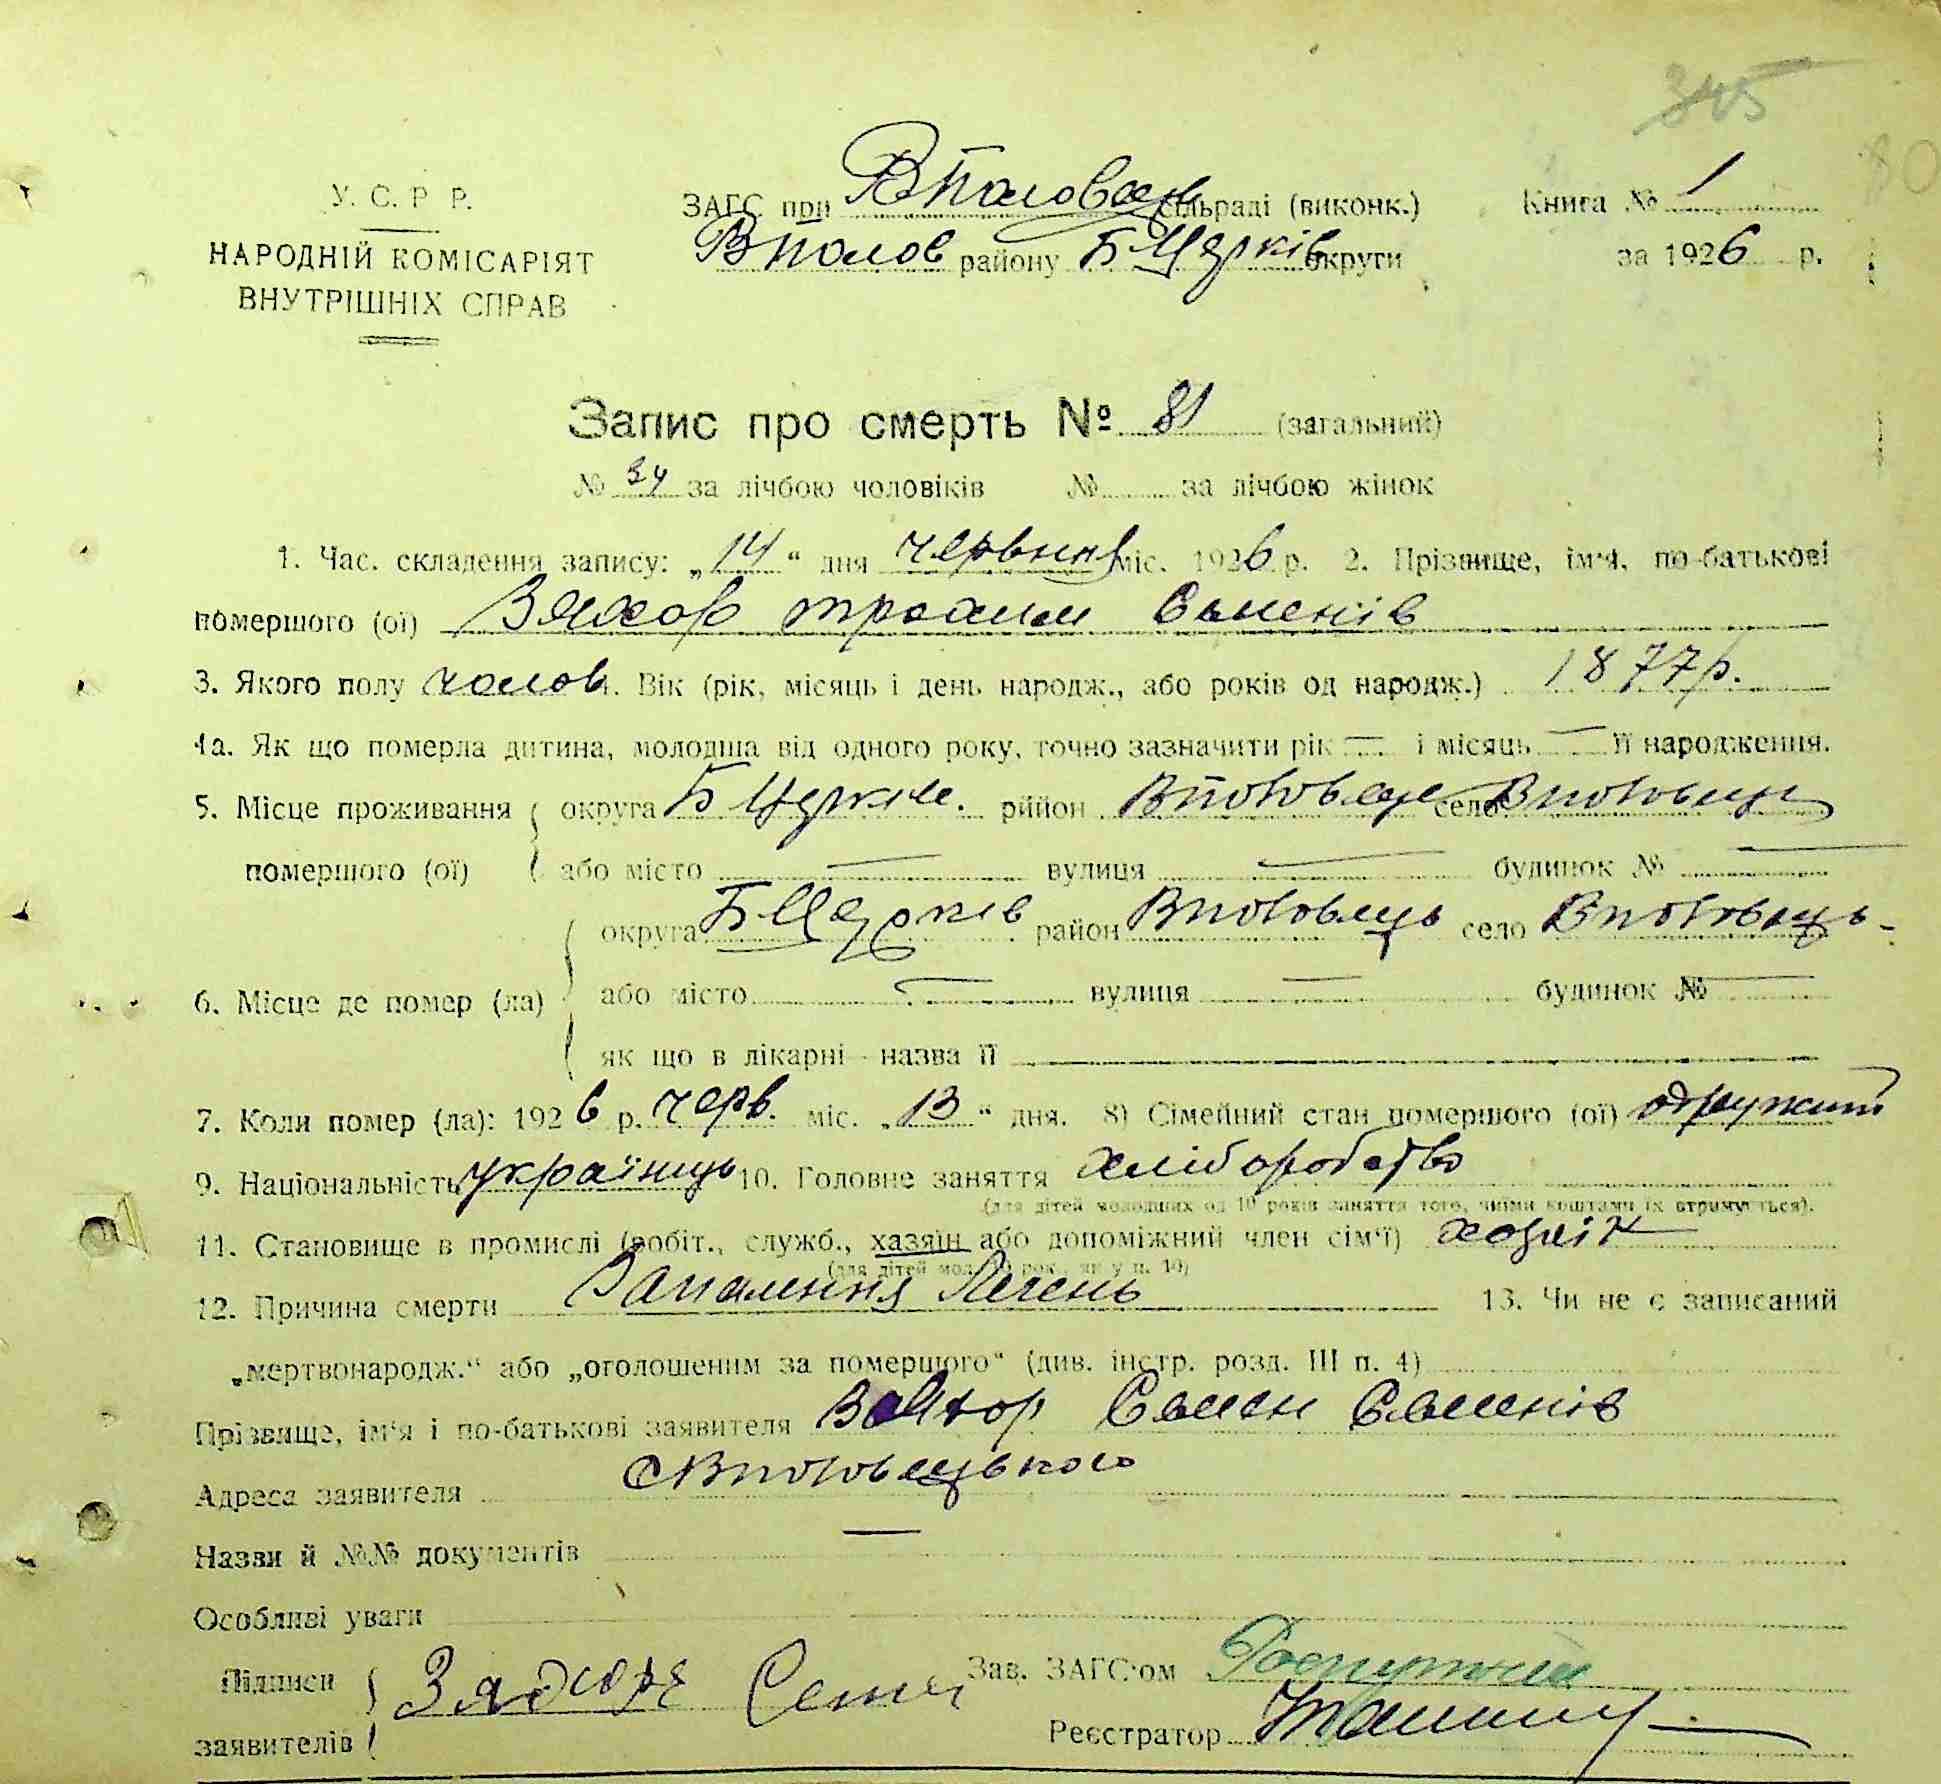 345
80
У. С. Р Р.
НАРОДНІЙ КОМІСАРІЯТ
ВНУТРІШНІХ СПРАВ
ЗАГС при сільраді (виконк.)
району Б Церків округи
Книга № 1
за 1926 р.
Запис про смерть № 81 (загальний)
№ 34 за лічбою чоловіків № за лічбою жінок
1. Час. складення запису: „14“ дня червня міс. 1926 р. 2. Прізвище, ім'я, по-батькові
помершого (ої) Трохим Семенів
3. Якого полу чолов. Вік (рік, місяць і день народж., або років од народж.) 1877 р.
4а. Як що померла дитина, молодша від одного року, точно зазначити рік — і місяць — її народження.
5. Місце проживання округа Б Церків. район село
помершого (ої) або місто — вулиця — будинок № —
округа Б Церків район село
6. Місце де помер (ла) або місто — вулиця — будинок № —
як що в лікарні - назва її —
7. Коли помер (ла): 1926 р. черв. міс. „13“ дня. 8) Сімейний стан помершого (ої) одружений
9. Національність українець 10. Головне заняття хліборобство
(для дітей молодших од 10 років заняття того, чиїми коштами їх отримується).
11. Становище в промислі (робіт., служб., хазяїн або допоміжний член сім'ї) хозяїн
(для дітей мол. 10 рок., як у п. 10)
12. Причина смерти Запалення Легень 13. Чи не є записаний
„мертвонародж.“ або „оголошеним за помершого“ (див. інстр. розд. III п. 4)
Прізвище, ім'я і по-батькові заявителя Семен Семенів
Адреса заявителя
Назви й №№ документів —
Особливі уваги
Підписи
заявителів
Зав. ЗАГС'ом
Реєстратор